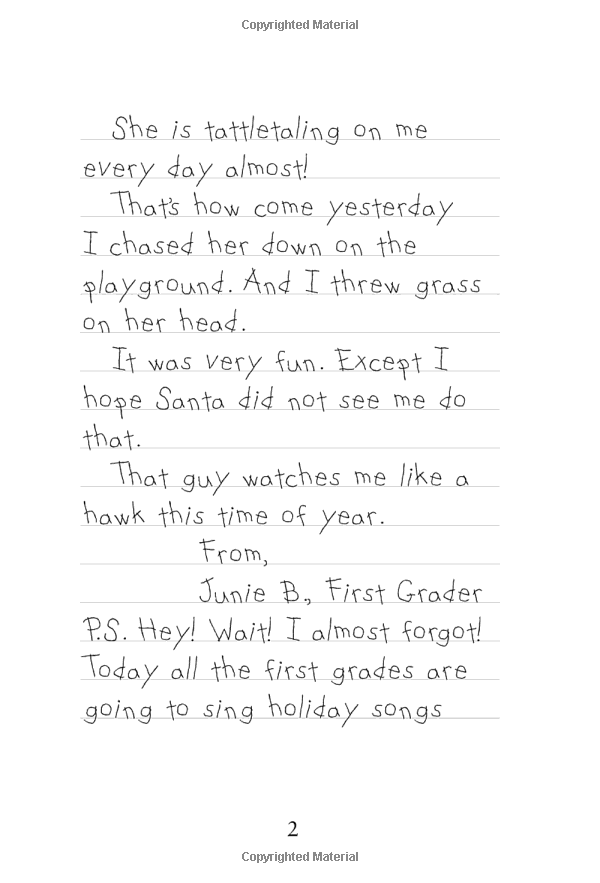 Copyrighted Material
She is tattletaling on me
every day almost!
That's how come yesterday
I chased her down on the
playground. And I threw grass
on her head.
It was very fun. Except I
hope Santa did not see me do
that.
That guy watches me like a
hawk this time of year.
From,
Junie B., First Grader
P.S. Hey! Wait! I almost forgot!
Today all the first grades are
going to sing holiday songs
2
Copyrighted Material